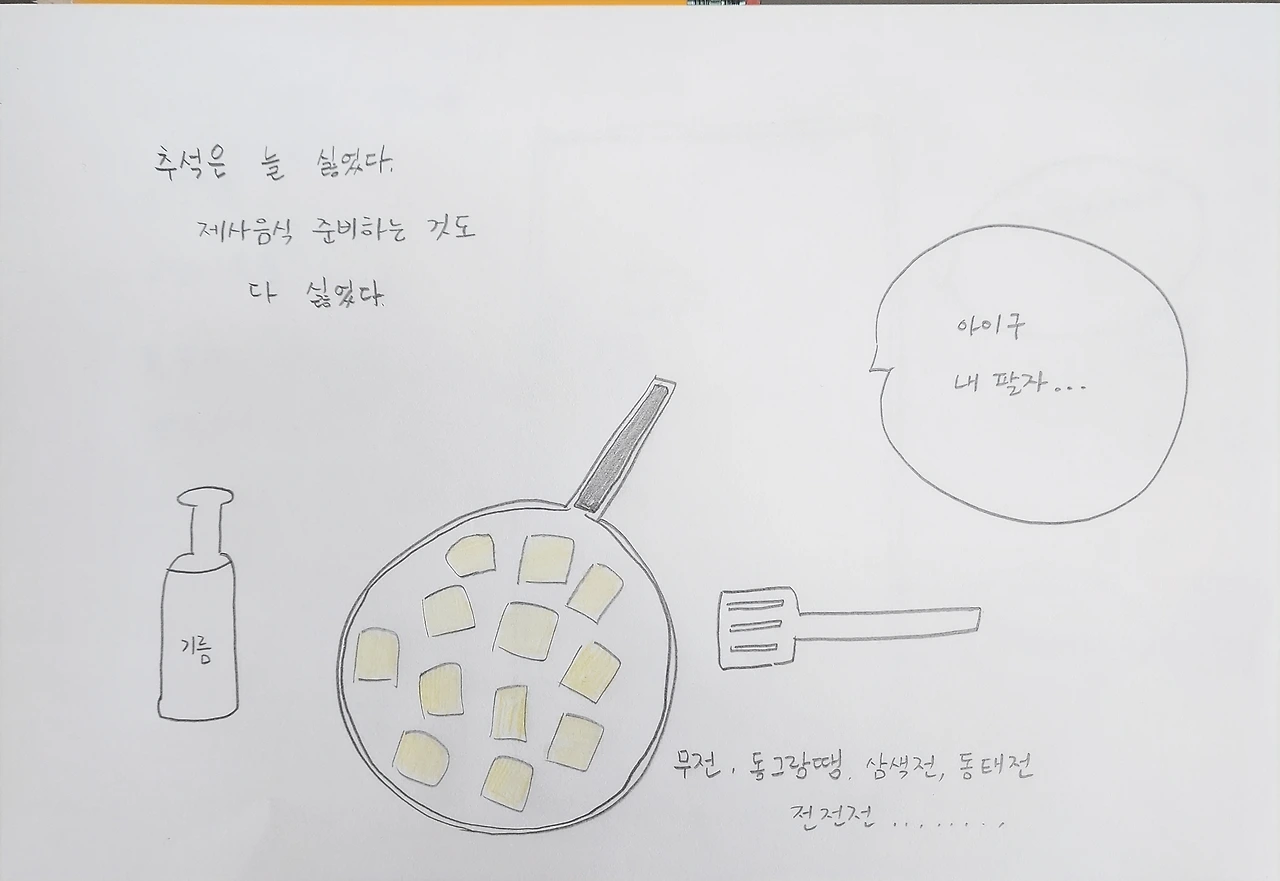 추석은 늘 싫었다.
제사음식 준비하는 것도
다 싫었다.
아이구
내 팔자...
기름
무전, 동그랑땡, 삼색전, 동태전
전전전 ........